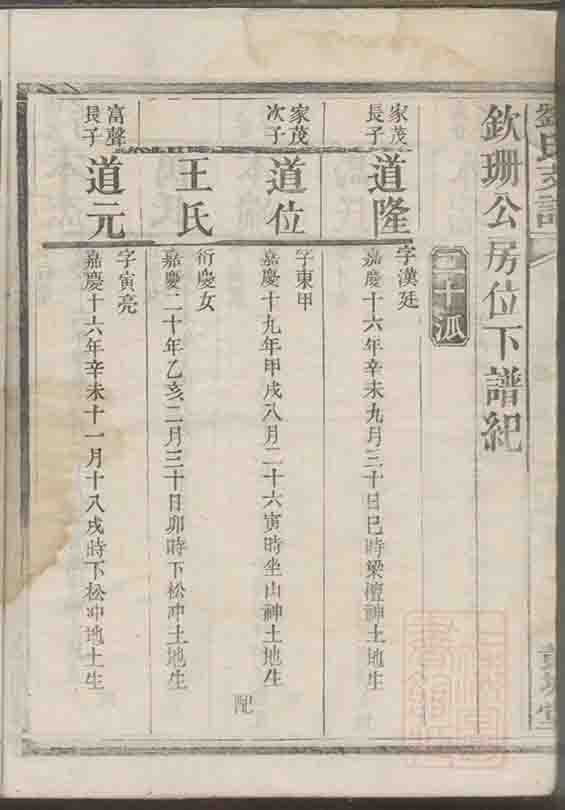 劉氏支譜
欽珊公房位下譜紀
二十派
家茂
長子
道隆
字漢廷
嘉慶十六年辛未九月三十日巳時梁檀神土地生
家茂
次子
道位
字東甲
嘉慶十九年甲戌八月二十六寅時坐山神土地生
配
王氏
衍慶女
嘉慶二十年乙亥二月三十日卯時下松冲土地生
富聲
長子
道元
字寅亮
嘉慶十六年辛未十一月十八戌時下松冲地土生